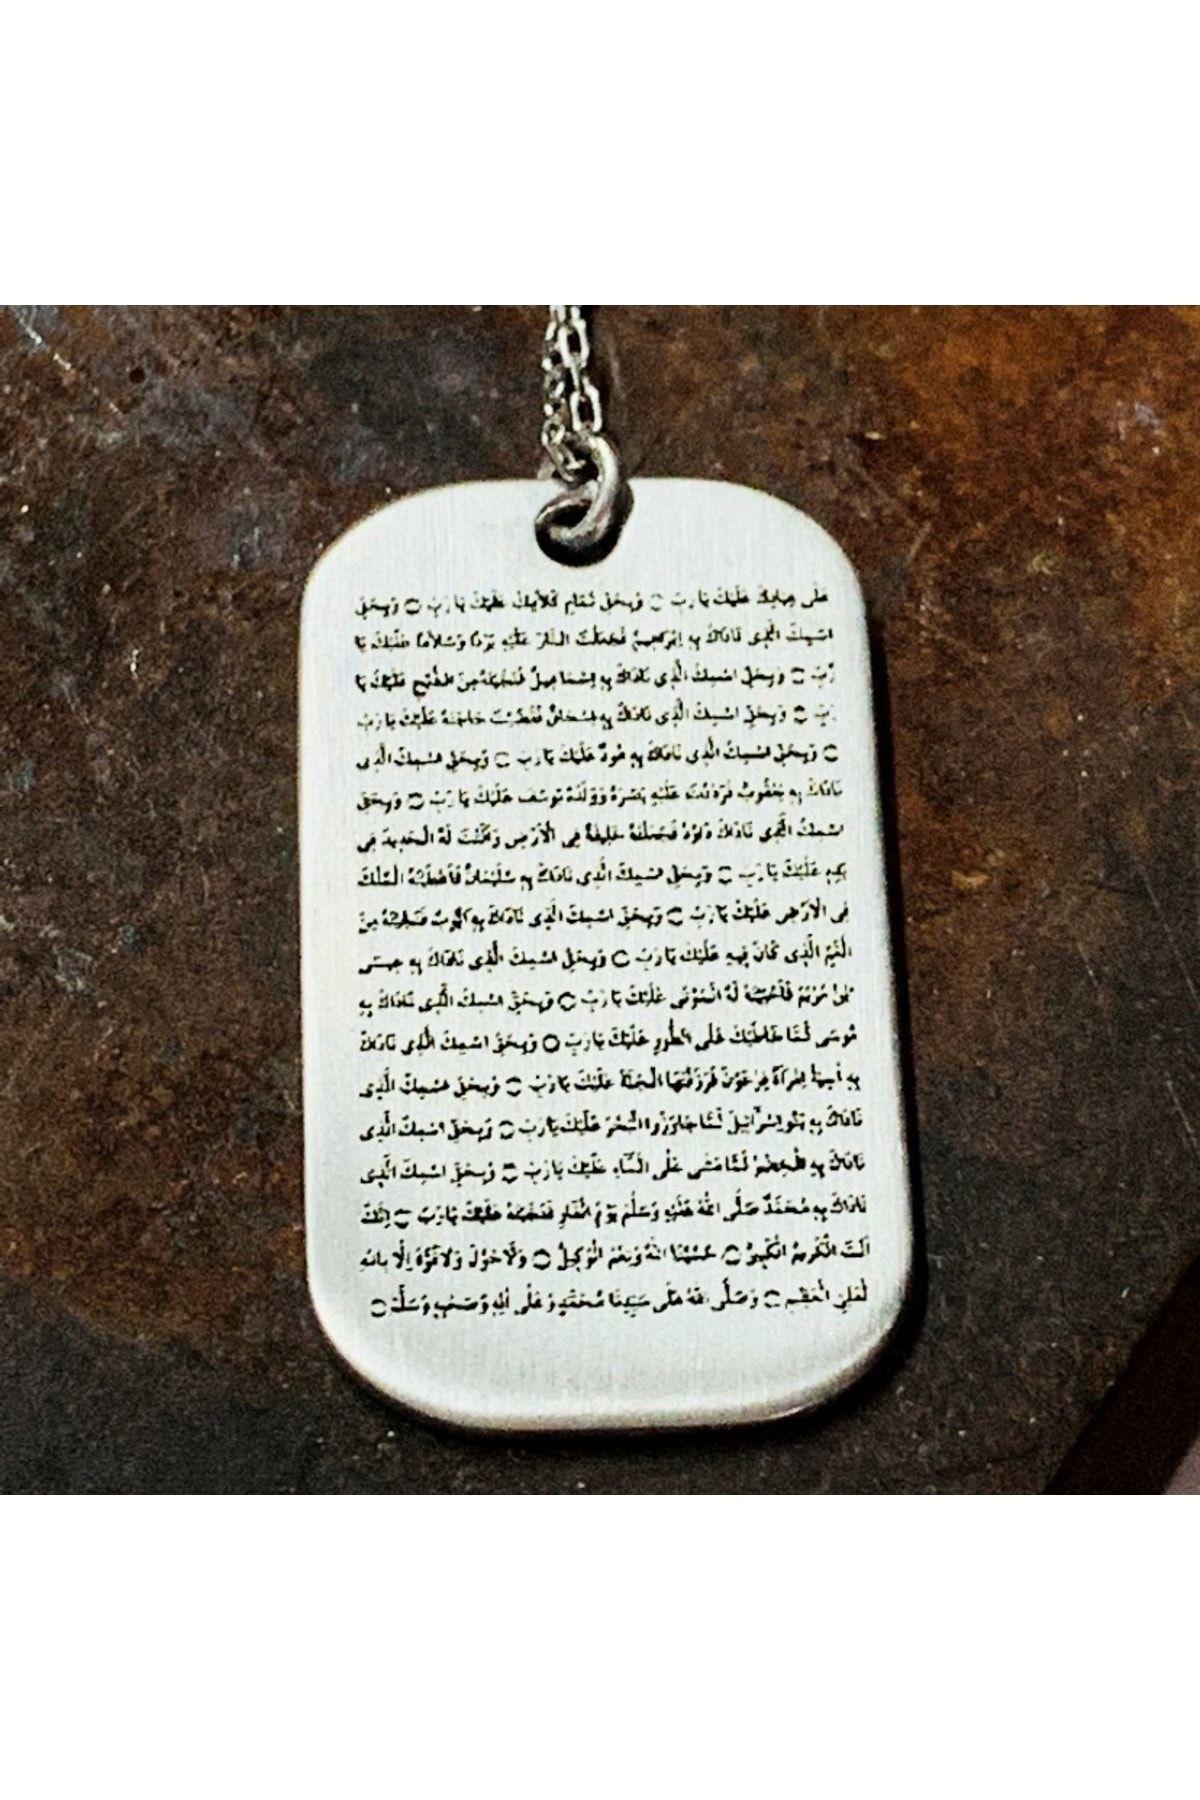 عَلَى عِبَادِكَ عَلَيْكَ يَا رَبِّ ○ وَبِحَقِّ عَلَيْكَ يَا رَبِّ ○ وَبِحَقِّ
اسْمِكَ الَّذِى نَادَاكَ بِهِ اِبْرٰهِيمُ فَجَعَلْتَ النَّارَ عَلَيْهِ بَرْدًا وَسَلَامًا عَلَيْكَ يَا
رَبِّ ○ وَبِحَقِّ اسْمِكَ الَّذِى نَادَاكَ بِهِ اِسْمَاعِيلُ مِنَ الذَّبْحِ عَلَيْكَ يَا
رَبِّ ○ وَبِحَقِّ اسْمِكَ الَّذِى نَادَاكَ بِهِ اِسْحَاقُ فَقَضَيْتَ حَاجَتَهُ عَلَيْكَ يَا رَبِّ
○ وَبِحَقِّ اسْمِكَ الَّذِى نَادَاكَ بِهِ هُودٌ عَلَيْكَ يَا رَبِّ ○ وَبِحَقِّ اسْمِكَ الَّذِى
نَادَاكَ بِهِ يَعْقُوبُ فَرَدَدْتَ عَلَيْهِ بَصَرَهُ وَوَلَدَهُ يُوسُفَ عَلَيْكَ يَا رَبِّ ○ وَبِحَقِّ
اسْمِكَ الَّذِى نَادَاكَ دَاوُدُ فَجَعَلْتَهُ خَلِيفَةً فِى الْاَرْضِ وَاَلَنْتَ لَهُ الْحَدِيدَ فِى
يَدِهِ عَلَيْكَ يَا رَبِّ ○ وَبِحَقِّ اسْمِكَ الَّذِى نَادَاكَ بِهِ سُلَيْمَانُ فَاَعْطَيْتَهُ الْمُلْكَ
فِى الْاَرْضِ عَلَيْكَ يَا رَبِّ ○ وَبِحَقِّ اسْمِكَ الَّذِى نَادَاكَ بِهِ اَيُّوبُ فَنَجَّيْتَهُ مِنَ
الْغَمِّ الَّذِى كَانَ فِيهِ عَلَيْكَ يَا رَبِّ ○ وَبِحَقِّ اسْمِكَ الَّذِى نَادَاكَ بِهِ عِيسَى
بْنُ مَرْيَمَ فَاَحْيَيْتَ لَهُ الْمَوْتَى عَلَيْكَ يَا رَبِّ ○ وَبِحَقِّ اسْمِكَ الَّذِى نَادَاكَ بِهِ
مُوسَى لَمَّا خَاطَبَكَ عَلَى الطُّورِ عَلَيْكَ يَا رَبِّ ○ وَبِحَقِّ اسْمِكَ الَّذِى نَادَاكَ
بِهِ اٰسِيَةُ اِمْرَاَةُ فِرْعَوْنَ فَرَزَقْتَهَا الْجَنَّةَ عَلَيْكَ يَا رَبِّ ○ وَبِحَقِّ اسْمِكَ الَّذِى
نَادَاكَ بِهِ بَنُو اِسْرَائِيلَ لَمَّا جَاوَزُوا الْبَحْرَ عَلَيْكَ يَا رَبِّ ○ وَبِحَقِّ اسْمِكَ الَّذِى
نَادَاكَ بِهِ الْخِضْرُ لَمَّا مَشَى عَلَى الْمَاءِ عَلَيْكَ يَا رَبِّ ○ وَبِحَقِّ اسْمِكَ الَّذِى
نَادَاكَ بِهِ مُحَمَّدٌ صَلَّى اللّٰهُ عَلَيْهِ وَسَلَّمَ يَوْمَ الْغَارِ فَنَجَّيْتَهُ عَلَيْكَ يَا رَبِّ ○ اِنَّكَ
اَنْتَ الْكَرِيمُ الْكَبِيرُ ○ حَسْبُنَا اللّٰهُ وَنِعْمَ الْوَكِيلُ ○ وَلَا حَوْلَ وَلَا قُوَّةَ اِلَّا بِاللّٰهِ
الْعَلِىِّ الْعَظِيمِ ○ وَصَلَّى اللّٰهُ عَلَى سَيِّدِنَا مُحَمَّدٍ وَعَلَى اٰلِهِ وَصَحْبِهِ وَسَلَّمَ ○